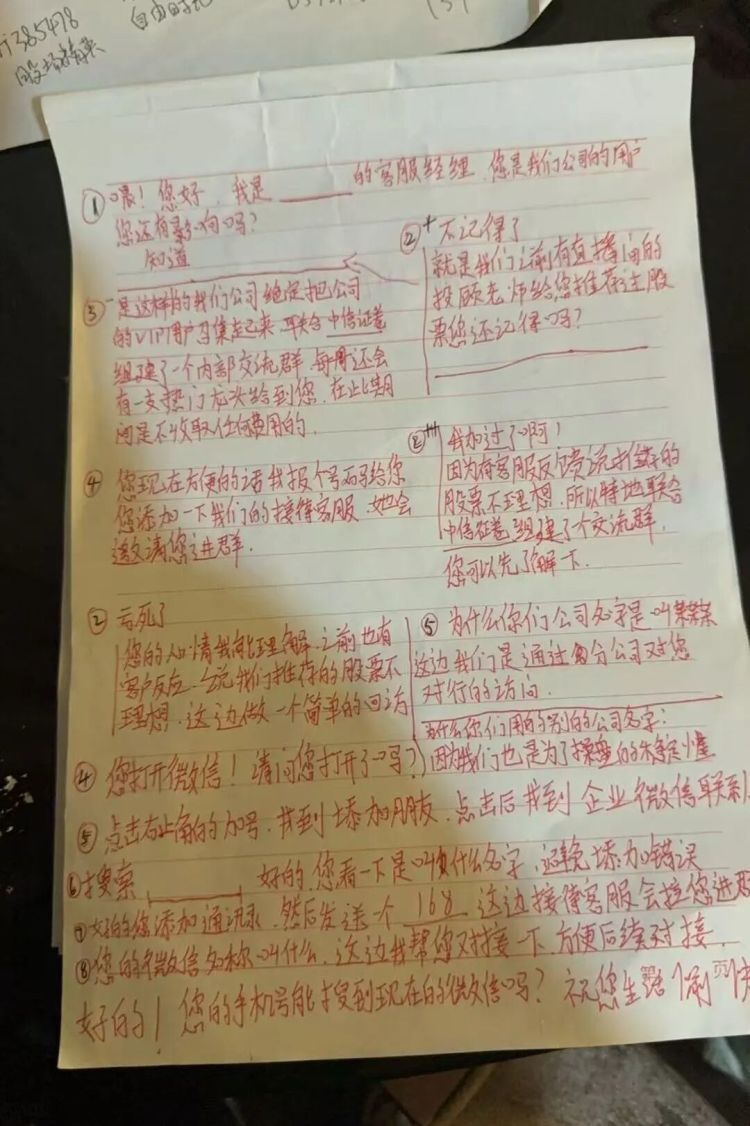 385478
自由时光
股场精英
① 喂！您好，我是 ______ 的客服经理，您是我们公司的用户
您还有影响吗？
知道
②+ 不记得了
就是我们之前有直播间的
投顾老师给您推荐过股
票您还记得吗？
③ 是这样的我们公司绝定把公司
的VIP用户召集起来，联合中信证券
组建了一个内部交流群，每周还会
有一支热门龙头给到您，在此期
间是不收取任何费用的，
我加过了啊！
因为有客服反馈说推荐的
股票不理想，所以特地联合
中信证卷组建了个交流群，
您可以先了解一下．
④ 您现在方便的话我报个号码给您
您添加一下我们的接待客服，她会
邀请您进群．
② 亏死了
您的心情我能理解，之前也有
客户反应，说我们推荐的股票不
理想，这边做一个简单的回访
⑤ 为什么你们公司名字是叫某某某
这边我们是通过自分公司对您
对行的访问，
为什么你们用的别的公司名字：
因为我们也是为了操盘的
④ 您打开微信！请问您打开了吗？
⑤ 点击右上角的加号，找到添加朋友，点击后找到企业微信联系
⑥ 搜索 ______ 好的，您看一下是叫什么名字，避免添加错误
⑦ 好的您添加通讯录，然后发送一个 168 这边接待客服会拉您进群
⑧ 您的微信名称叫什么，这边我帮您对接一下，方便后续对接，
好的！您的手机号能搜到现在的微信吗？祝您生活